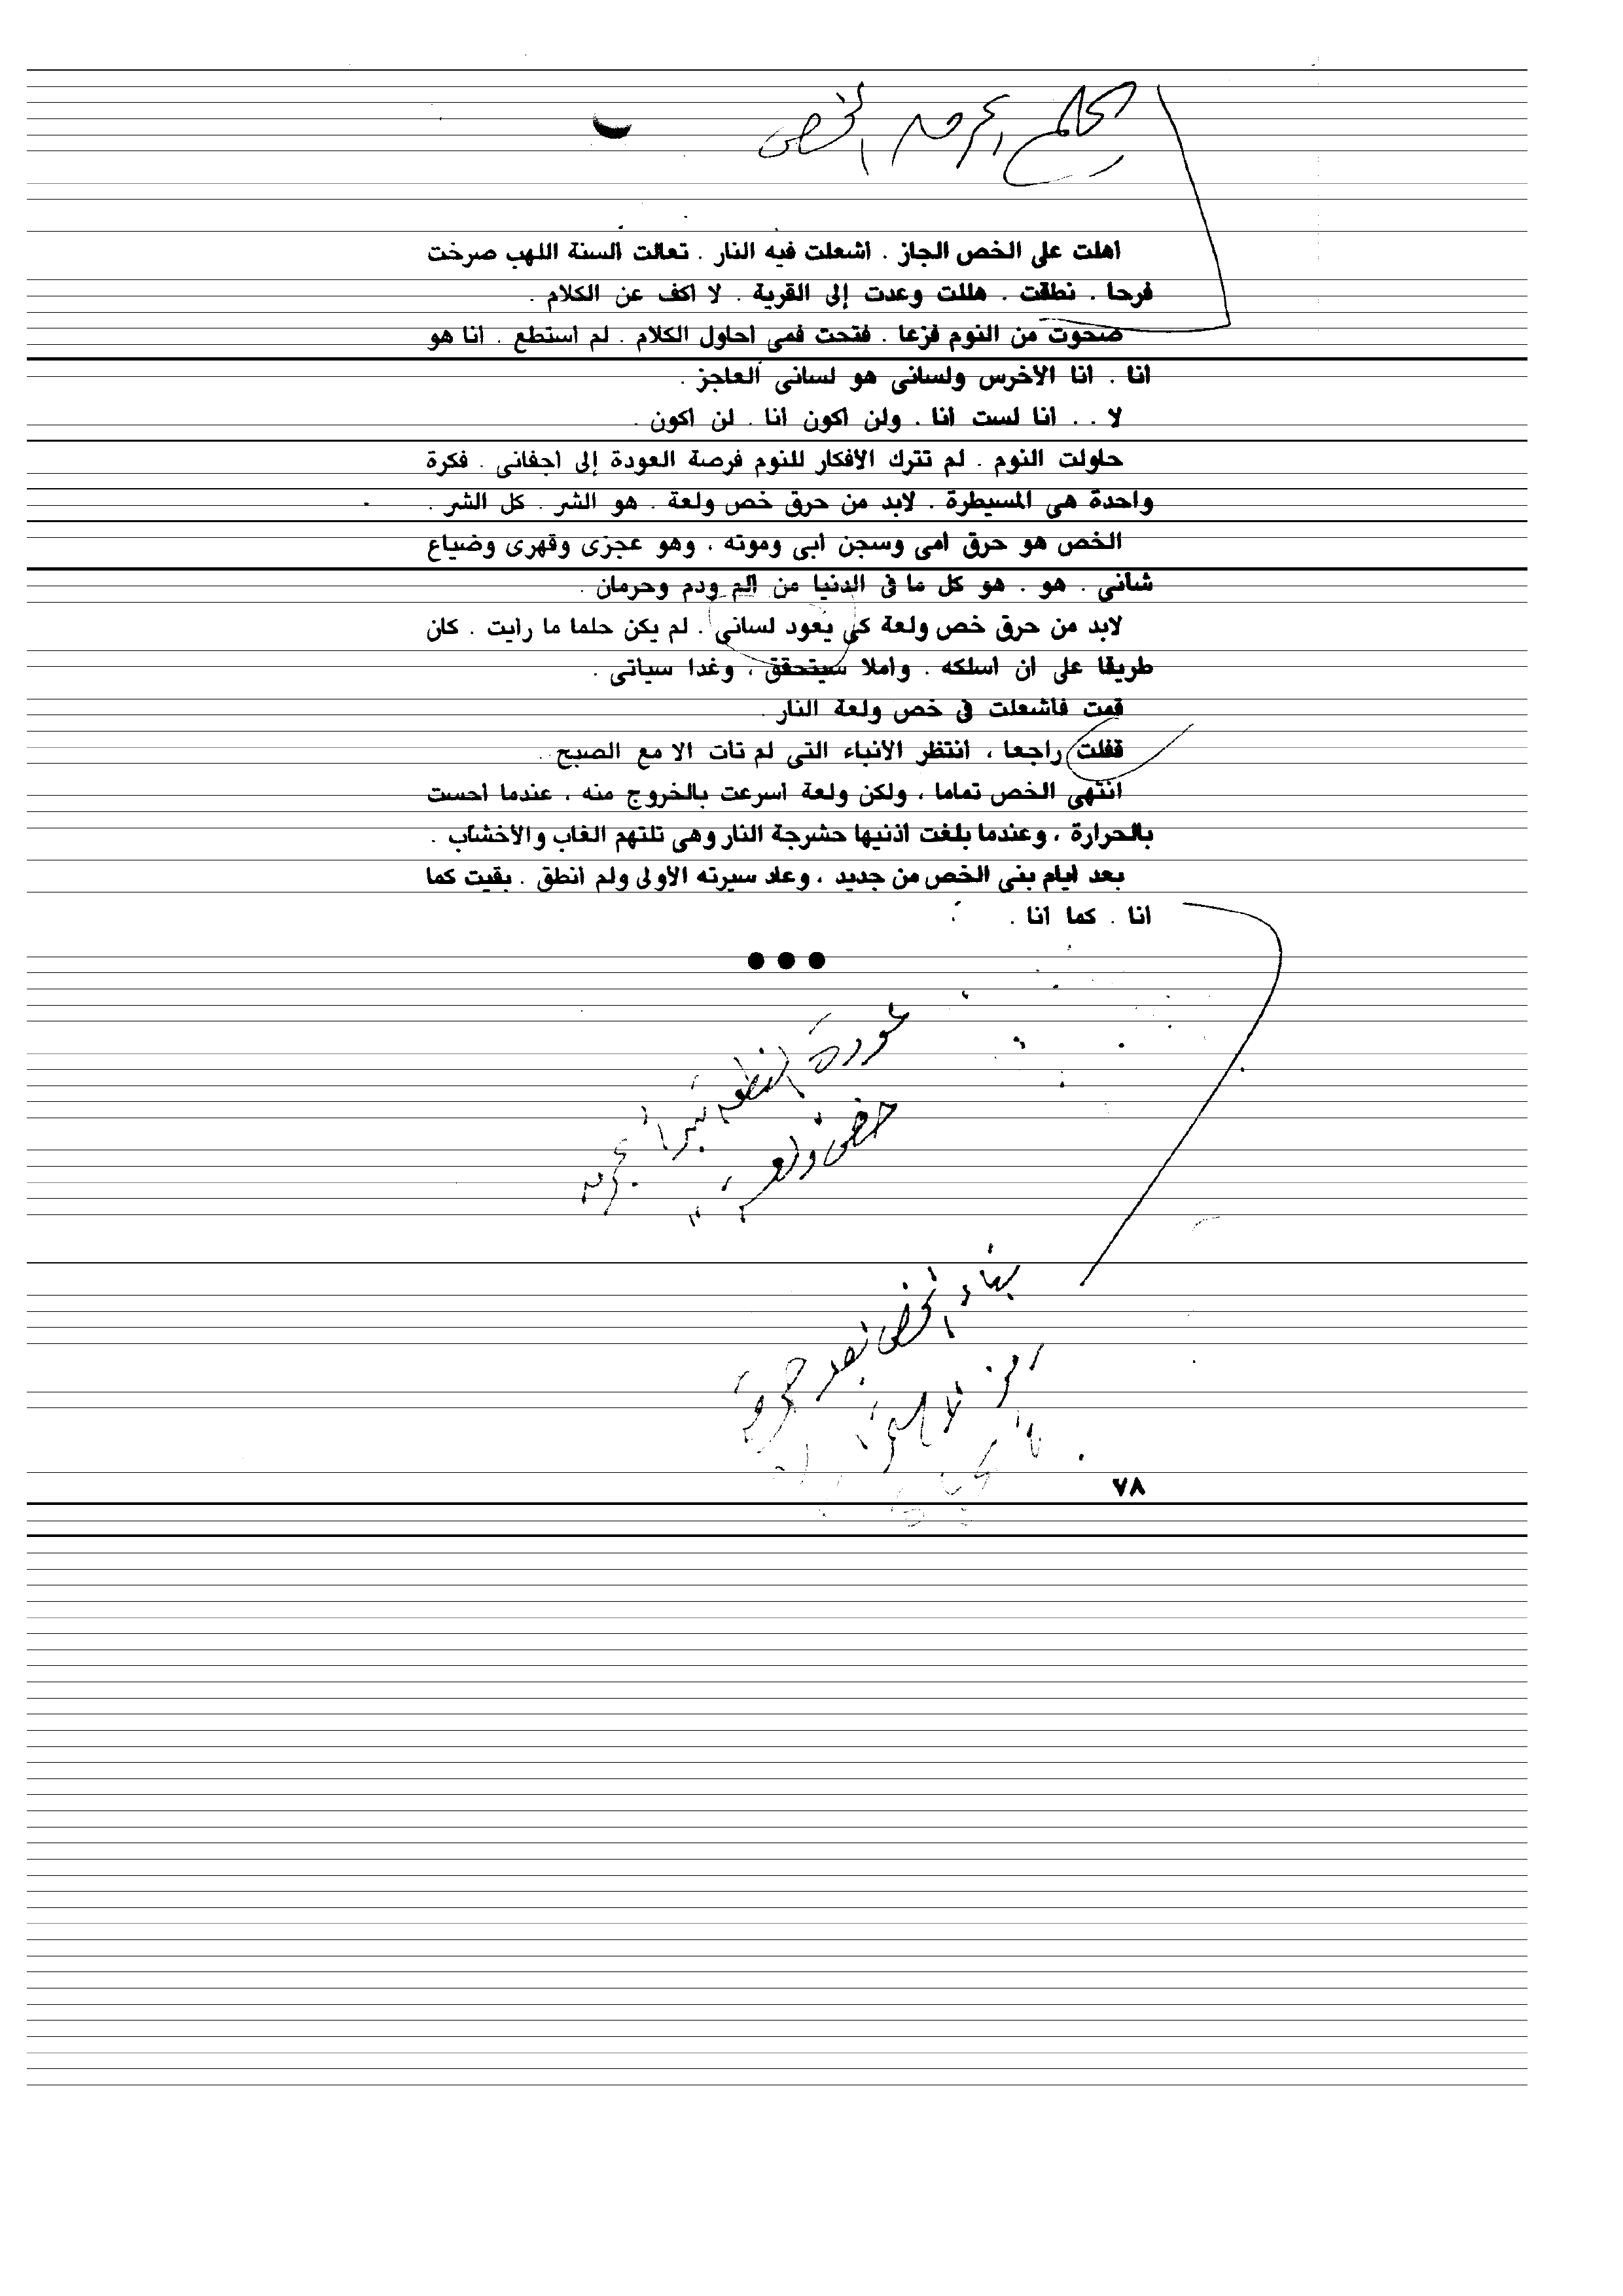 الحلم بحرق الخص
أهلت على الخص الجاز . أشعلت فيه النار . تعالت السنة اللهب صرخت
فرحا . نطقت . هللت وعدت إلى القرية . لا اكف عن الكلام .
صحوت من النوم فزعا . فتحت فمى احاول الكلام . لم استطع . انا هو
انا . انا الأخرس ولسانى هو لسانى العاجز .
لا . . انا لست انا . ولن اكون انا . لن اكون .
حاولت النوم . لم تترك الأفكار للنوم فرصة العودة إلى اجفانى . فكرة
واحدة هى المسيطرة . لابد من حرق خص ولعة . هو الشر . كل الشر .
الخص هو حرق امى وسجن ابى وموته ، وهو عجزى وقهرى وضياع
شأنى . هو . هو كل ما فى الدنيا من ألم ودم وحرمان .
لابد من حرق خص ولعة كى يعود لسانى . لم يكن حلما ما رايت . كان
طريقا على ان اسلكه . وأملا سيتحقق ، وغدا سياتى .
قمت فأشعلت فى خص ولعة النار .
قفلت راجعا ، أنتظر الأنباء التى لم تات الا مع الصبح .
انتهى الخص تماما ، ولكن ولعة أسرعت بالخروج منه ، عندما احست
بالحرارة ، وعندما بلغت اذنيها حشرجة النار وهى تلتهم الغاب والأخشاب .
بعد ايام بنى الخص من جديد ، وعاد سيرته الأولى ولم انطق . بقيت كما
انا . كما انا .
عودة النطق
خص ولعة
بناء الخص بعد حرقه
٧٨